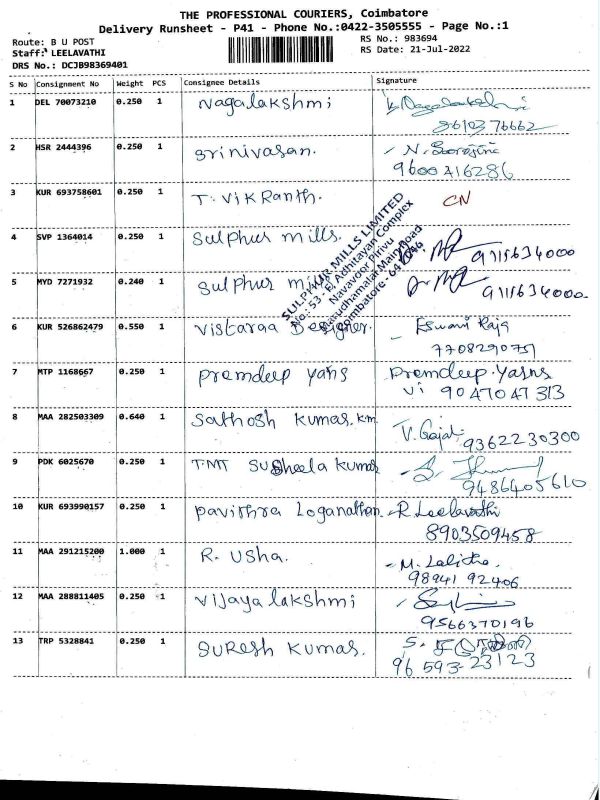 THE PROFESSIONAL COURIERS, Coimbatore
Delivery Runsheet - P41 - Phone No.:0422-3505555 - Page No.:1
Route: B U POST
RS No.: 983694
Staff: LEELAVATHI
RS Date: 21-Jul-2022
DRS No.: DCJB98369401
S No Consignment No Weight PCS Consignee Details Signature
1 DEL 70073210 0.250 1 Nagalakshmi
2 HSR 2444396 0.250 1 Srinivasan. N.
9600416286
3 KUR 693758601 0.250 1 T. Vikranth. CN
SULPHUR MILLS LIMITED
No.: 53 - E, Adhitayan Complex
Navavoor Pirivu
Marudhamalai Main Road
Coimbatore - 641 046
4 SVP 1364014 0.250 1 Sulphur mills. 9111634000
5 MYD 7271932 0.240 1 Sulphur mills 9111634000.
6 KUR 526862479 0.550 1 Vistaraa Designer. Eswari Raja
7708290751
7 MTP 1168667 0.250 1 Premdeep yarns Premdeep. Yarns
Vi 90470 47 313
8 MAA 282503309 0.640 1 Sathosh Kumar. K.M. V. Gajal
93622 30300
9 PDK 6025670 0.250 1 TMT SuSheela Kumar
9486405610
10 KUR 693990157 0.250 1 Pavithra Loganathan R. Leelavathi
8903509458
11 MAA 291215200 1.000 1 R. Usha. M. Lalitha.
98941 92406
12 MAA 288811405 0.250 1 Vijayalakshmi
9566370196
13 TRP 5328841 0.250 1 Suresh Kumar. S.
96 593-23123